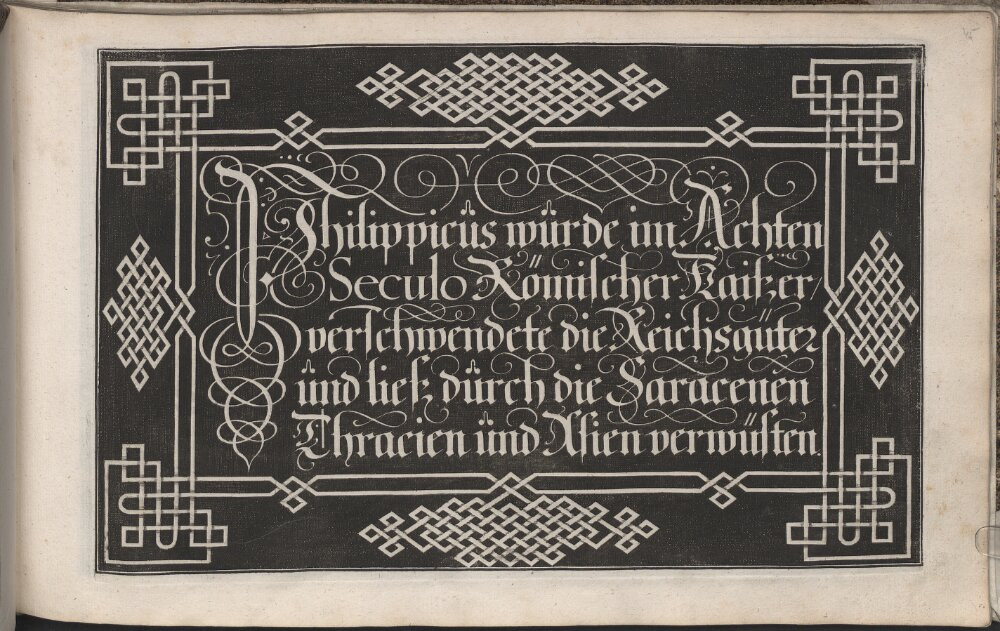 Philippicus wurde im Achten
Seculo Römischer Kaißer/
verschwendete die Reichsgüter
und ließ durch die Saracenen
Thracien und Asien verwüsten.